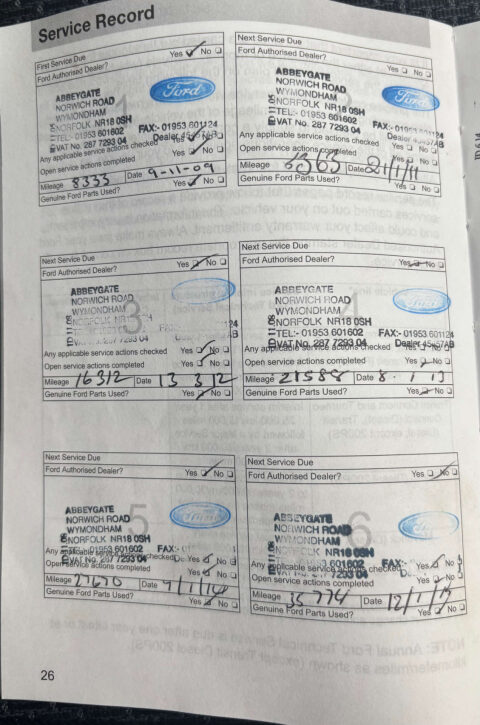 Service Record
First Service Due
Ford Authorised Dealer? Yes No
ABBEYGATE
NORWICH ROAD
WYMONDHAM
NORFOLK NR18 0SH
TEL:- 01953 601602 FAX:- 01953 601124
VAT No. 287 7293 04 Dealer 45457AB
Any applicable service actions checked Yes No
Open service actions completed Yes No
Mileage 8333 Date 9-11-09
Genuine Ford Parts Used? Yes No
Ford
Next Service Due
Ford Authorised Dealer? Yes No
ABBEYGATE
NORWICH ROAD
WYMONDHAM
NORFOLK NR18 0SH
TEL:- 01953 601602 FAX:- 01953 601124
VAT No. 287 7293 04 Dealer 45457AB
Any applicable service actions checked Yes No
Open service actions completed Yes No
Mileage Date 21/1/11
Genuine Ford Parts Used? Yes No
Ford
Next Service Due
Ford Authorised Dealer? Yes No
ABBEYGATE
NORWICH ROAD
WYMONDHAM
NORFOLK NR18
3
FAX:- 124
7293 04
Any applicable service actions checked Yes No
Open service actions completed Yes No
Mileage 16312 Date 13 3 12
Genuine Ford Parts Used? Yes No
Next Service Due
Ford Authorised Dealer? Yes No
ABBEYGATE
NORWICH ROAD
WYMONDHAM
NORFOLK NR18 0SH
TEL:- 01953 601602 FAX:- 01953 601124
VAT No. 287 7293 04 Dealer 45457AB
4
Any applicable service actions checked Yes No
Open service actions completed Yes No
Mileage 21588 Date 8 . 1 13
Genuine Ford Parts Used? Yes No
Ford
Next Service Due
Ford Authorised Dealer? Yes No
ABBEYGATE
NORWICH ROAD
WYMONDHAM
NORFOLK NR18 0SH
01953 601602 FAX:-
VAT No. 287 7293 04
5
Any applicable service actions checked Yes No
Open service actions completed Yes No
Mileage 27670 Date 9/1/14
Genuine Ford Parts Used? Yes No
Next Service Due
Ford Authorised Dealer? Yes No
ABBEYGATE
NORWICH ROAD
WYMONDHAM
NORFOLK NR18 0SH
601602 FAX:-
7293 04
6
Any applicable service actions checked Yes No
Open service actions completed Yes No
Mileage 35774 Date 12/1/15
Genuine Ford Parts Used? Yes No
26